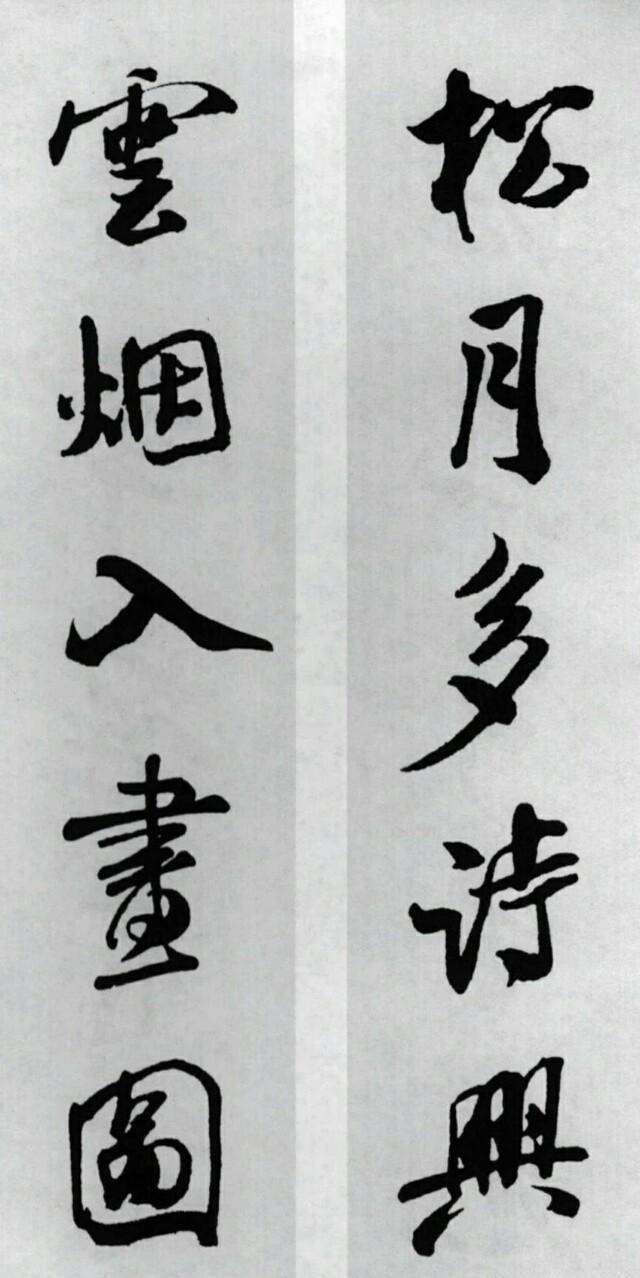 松月多詩興
雲烟入畫圖